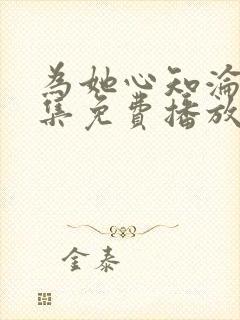 為她心知淪
集免費播放
金泰